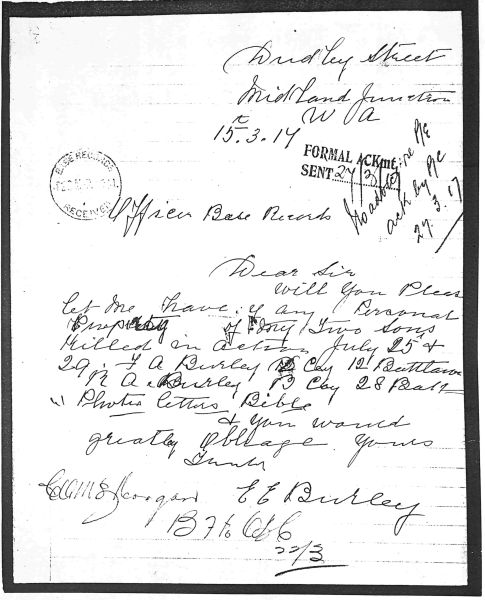 Dudley Street
Midland Junction
W A
15.3.17
FORMAL ACKmt.
SENT 27/3/17
BASE RECORDS
RECEIVED
ack by P/C
27.3.17
Officer Base Records
Dear Sir
Will You Pleas
let Me have if any Personal
Property of My Two Sons
Killed in action July 25 &
29. F A Burley B Coy 12 Battlaion
R A Burley B Coy 28 Batt
Photos letters Bible
& you would
greatly Obleage Yours
E E Burley
22/3